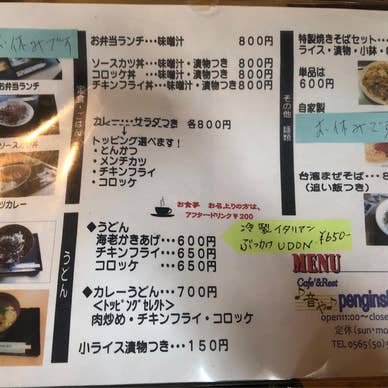 お休みです
お弁当ランチ
ソースカツ丼
カレー
定食・ごはん
お弁当ランチ・・・味噌汁 800円
ソースカツ丼・・・味噌汁・漬物つき 800円
コロッケ丼・・・味噌汁・漬物つき 800円
チキンフライ丼・味噌汁・漬物つき 800円
カレー・・サラダつき 各800円
トッピング選べます!
・とんかつ
・メンチカツ
・チキンフライ
・コロッケ
お食事 お召上りの方は、
アフタードリンク¥200
うどん
◆うどん
海老かきあげ・・・600円
チキンフライ・・・650円
コロッケ・・・650円
◆カレーうどん・・・700円
<トッピングセレクト>
肉炒め・チキンフライ・コロッケ
小ライス漬物つき・・・150円
その他 麺類
特製焼きそばセット
ライス・漬物・小鉢・
単品は
600円
自家製
お休みです
台湾まぜそば・・8
(追い飯つき)
冷製イタリアン
ぶっかけUDON ¥650-
MENU
Cafe'&Rest
音や penginsk
open11:00〜close
定休(sun・mo
TEL 0565(50)5